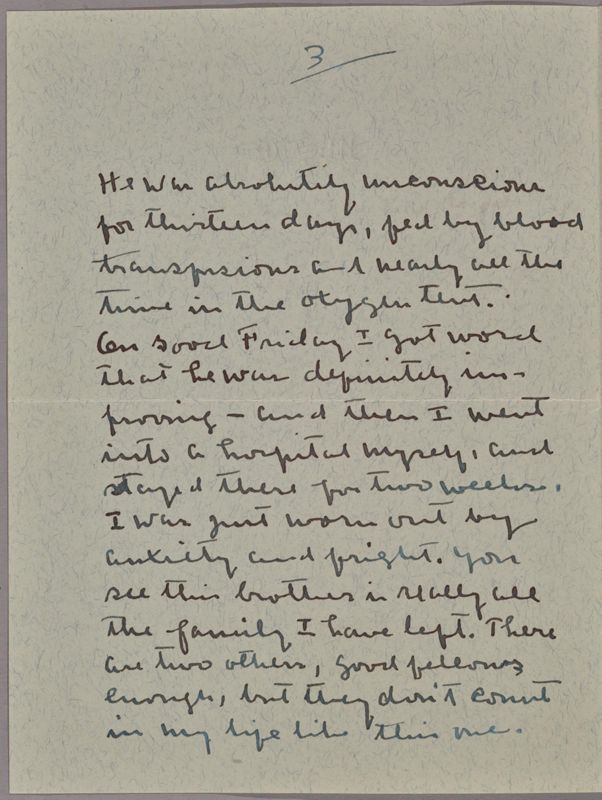 3
He was absolutely unconscious
for thirteen days, fed by blood
transfusions and nearly all the
time in the oxygen tent.
On Good Friday I got word
that he was definitely im-
proving - and then I went
into a hospital myself, and
stayed there for two weeks.
I was just worn out by
anxiety and fright. You
see this brother is really all
the family I have left. There
are two others, good fellows
enough, but they don't count
in my life like this one.